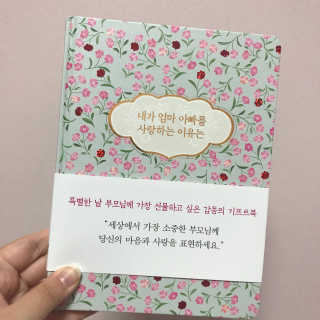 내가 엄마 아빠를
사랑하는 이유는
특별한 날 부모님께 가장 선물하고 싶은 감동의 기프트북
"세상에서 가장 소중한 부모님께
당신의 마음과 사랑을 표현하세요."